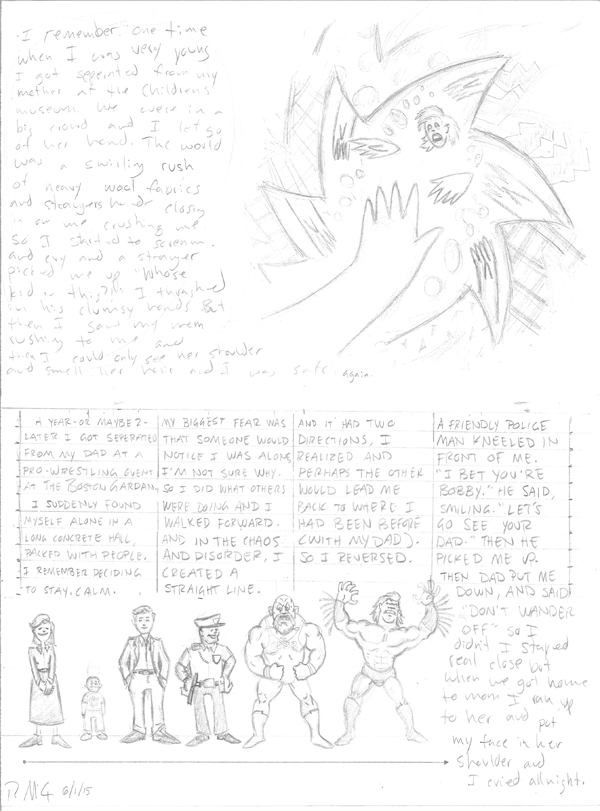 I remember one time
when I was very young
I got seperated from my
mother at the children's
museum. We were in a
big crowd and I let go
of her hand. The world
was a swirling rush
of heavy wool fabrics
and strangers hands closing
in on me crushing me
So I started to scream.
and cry and a stranger
picked me up "Whose
kid is this?" I thrashed
in his clumsy hands But
then I saw my mom
rushing to me and
then I could only see her shoulder
and smell her hair and I was safe again.
A YEAR-OR MAYBE 2-
LATER I GOT SEPERATED
FROM MY DAD AT A
PRO-WRESTLING EVENT
AT THE BOSTON GARDAN,
I SUDDENLY FOUND
MYSELF ALONE IN A
LONG CONCRETE HALL,
PACKED WITH PEOPLE.
I REMEMBER DECIDING
TO STAY CALM.
MY BIGGEST FEAR WAS
THAT SOMEONE WOULD
NOTICE I WAS ALONE
I'M NOT SURE WHY.
SO I DID WHAT OTHERS
WERE DOING AND I
WALKED FORWARD.
AND IN THE CHAOS
AND DISORDER, I
CREATED A
STRAIGHT LINE.
AND IT HAD TWO
DIRECTIONS, I
REALIZED AND
PERHAPS THE OTHER
WOULD LEAD ME
BACK TO WHERE I
HAD BEEN BEFORE
(WITH MY DAD).
SO I REVERSED.
A FRIENDLY POLICE
MAN KNEELED IN
FRONT OF ME.
"I BET YOU'RE
BOBBY." HE SAID,
SMILING. "LET'S
GO SEE YOUR
DAD." THEN HE
PICKED ME UP.
THEN DAD PUT ME
DOWN, AND SAID
"DON'T WANDER
OFF" so I
didn't I stayed
real close but
when we got home
to mom I ran up
to her and put
my face in her
shoulder and
I cried all night.
RMG 6/1/15